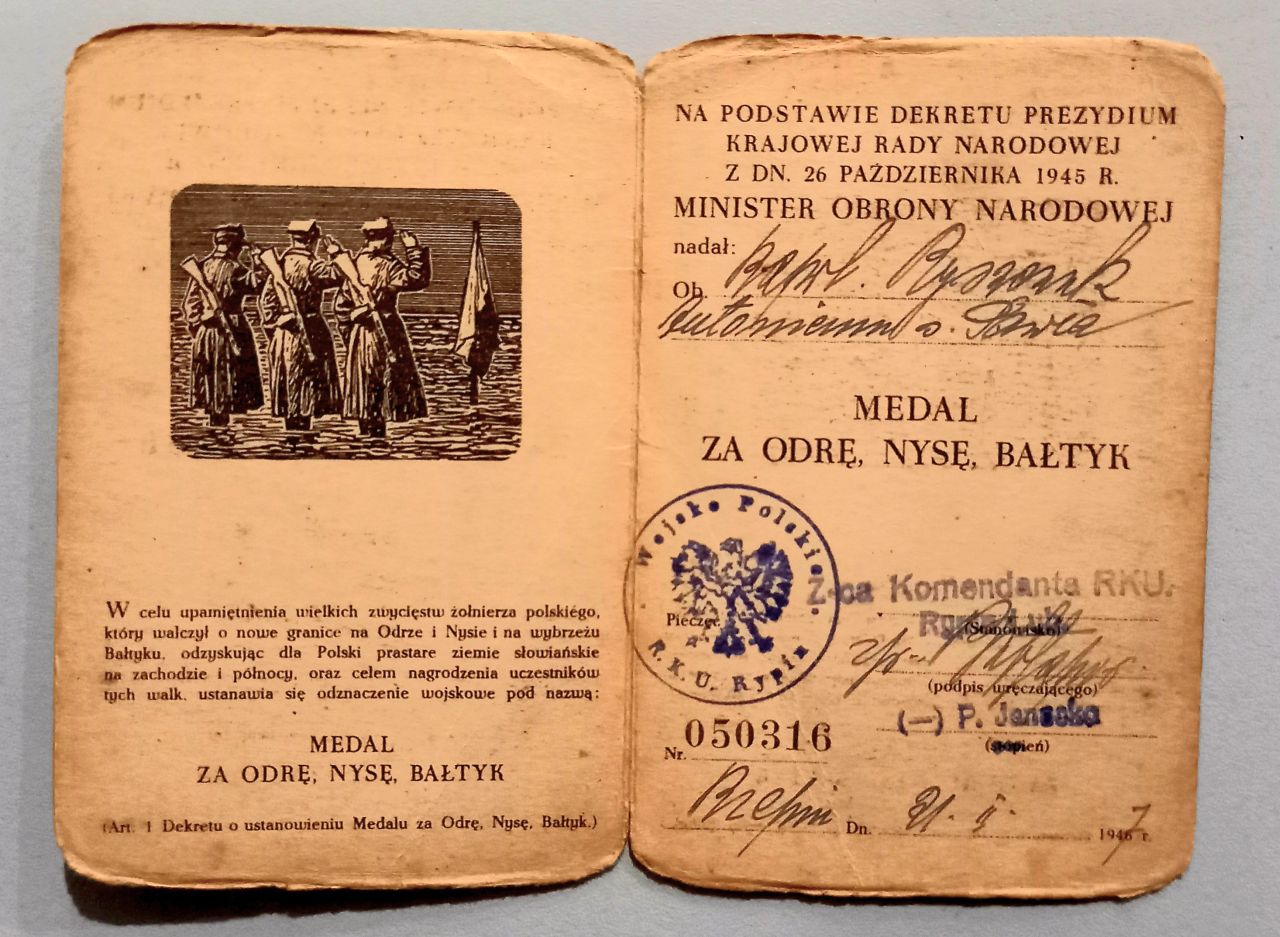 W celu upamiętnienia wielkich zwycięstw żołnierza polskiego,
który walczył o nowe granice na Odrze i Nysie i na wybrzeżu
Bałtyku, odzyskując dla Polski prastare ziemie słowiańskie
na zachodzie i północy, oraz celem nagrodzenia uczestników
tych walk, ustanawia się odznaczenie wojskowe pod nazwą:
MEDAL
ZA ODRĘ, NYSĘ, BAŁTYK
(Art. 1 Dekretu o ustanowieniu Medalu za Odrę, Nysę, Bałtyk.)
NA PODSTAWIE DEKRETU PREZYDIUM
KRAJOWEJ RADY NARODOWEJ
Z DN. 26 PAŹDZIERNIKA 1945 R.
MINISTER OBRONY NARODOWEJ
nadał:
Ob.
MEDAL
ZA ODRĘ, NYSĘ, BAŁTYK
Wojsko Polskie
R.K.U. Rypin
Pieczęć
Z-ca Komendanta RKU.
(Stanowisko)
(podpis wręczającego)
(—) P.
(stopień)
Nr. 050316
Dn. 21. 1947 r.